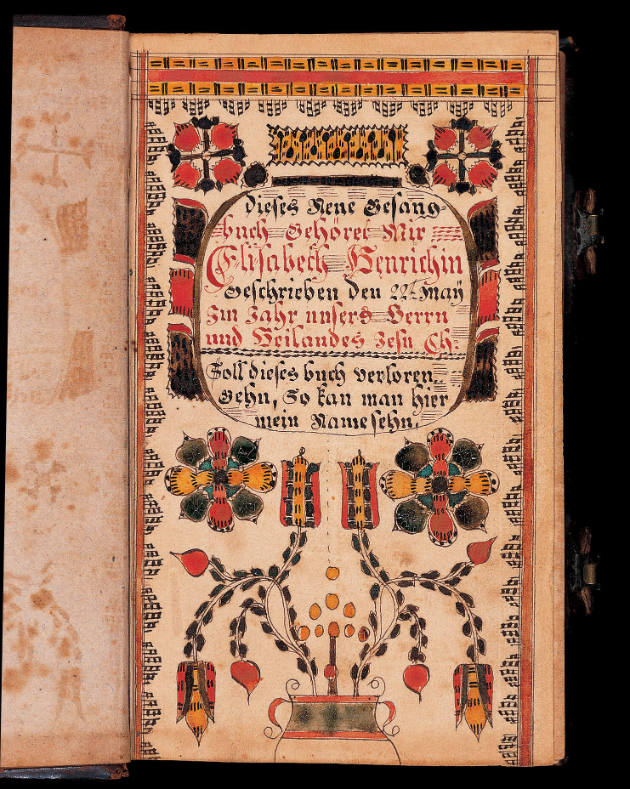 Dieses Neue Gesang-
buch Gehöret Mir
Elisabeth Henrichin
Geschrieben den 22t May
Im Jahr unsers Herrn
und Heilandes Jesu Ch:
Soll dieses buch verloren
Gehn, So kan man hier
mein Name sehn.